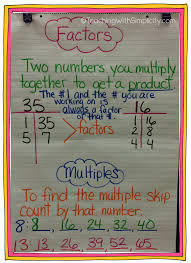 ©TeachingWithSimplicity.com
Factors
Two numbers you multiply
together to get a product.
The #1 and the # you are
working on is
always a factor
of that #.
35
1 35
5 7
factors
16
1 16
2 8
4 4
Multiples
To find the multiple skip
count by that number.
8: 8, 16, 24, 32, 40
13: 13, 26, 39, 52, 65